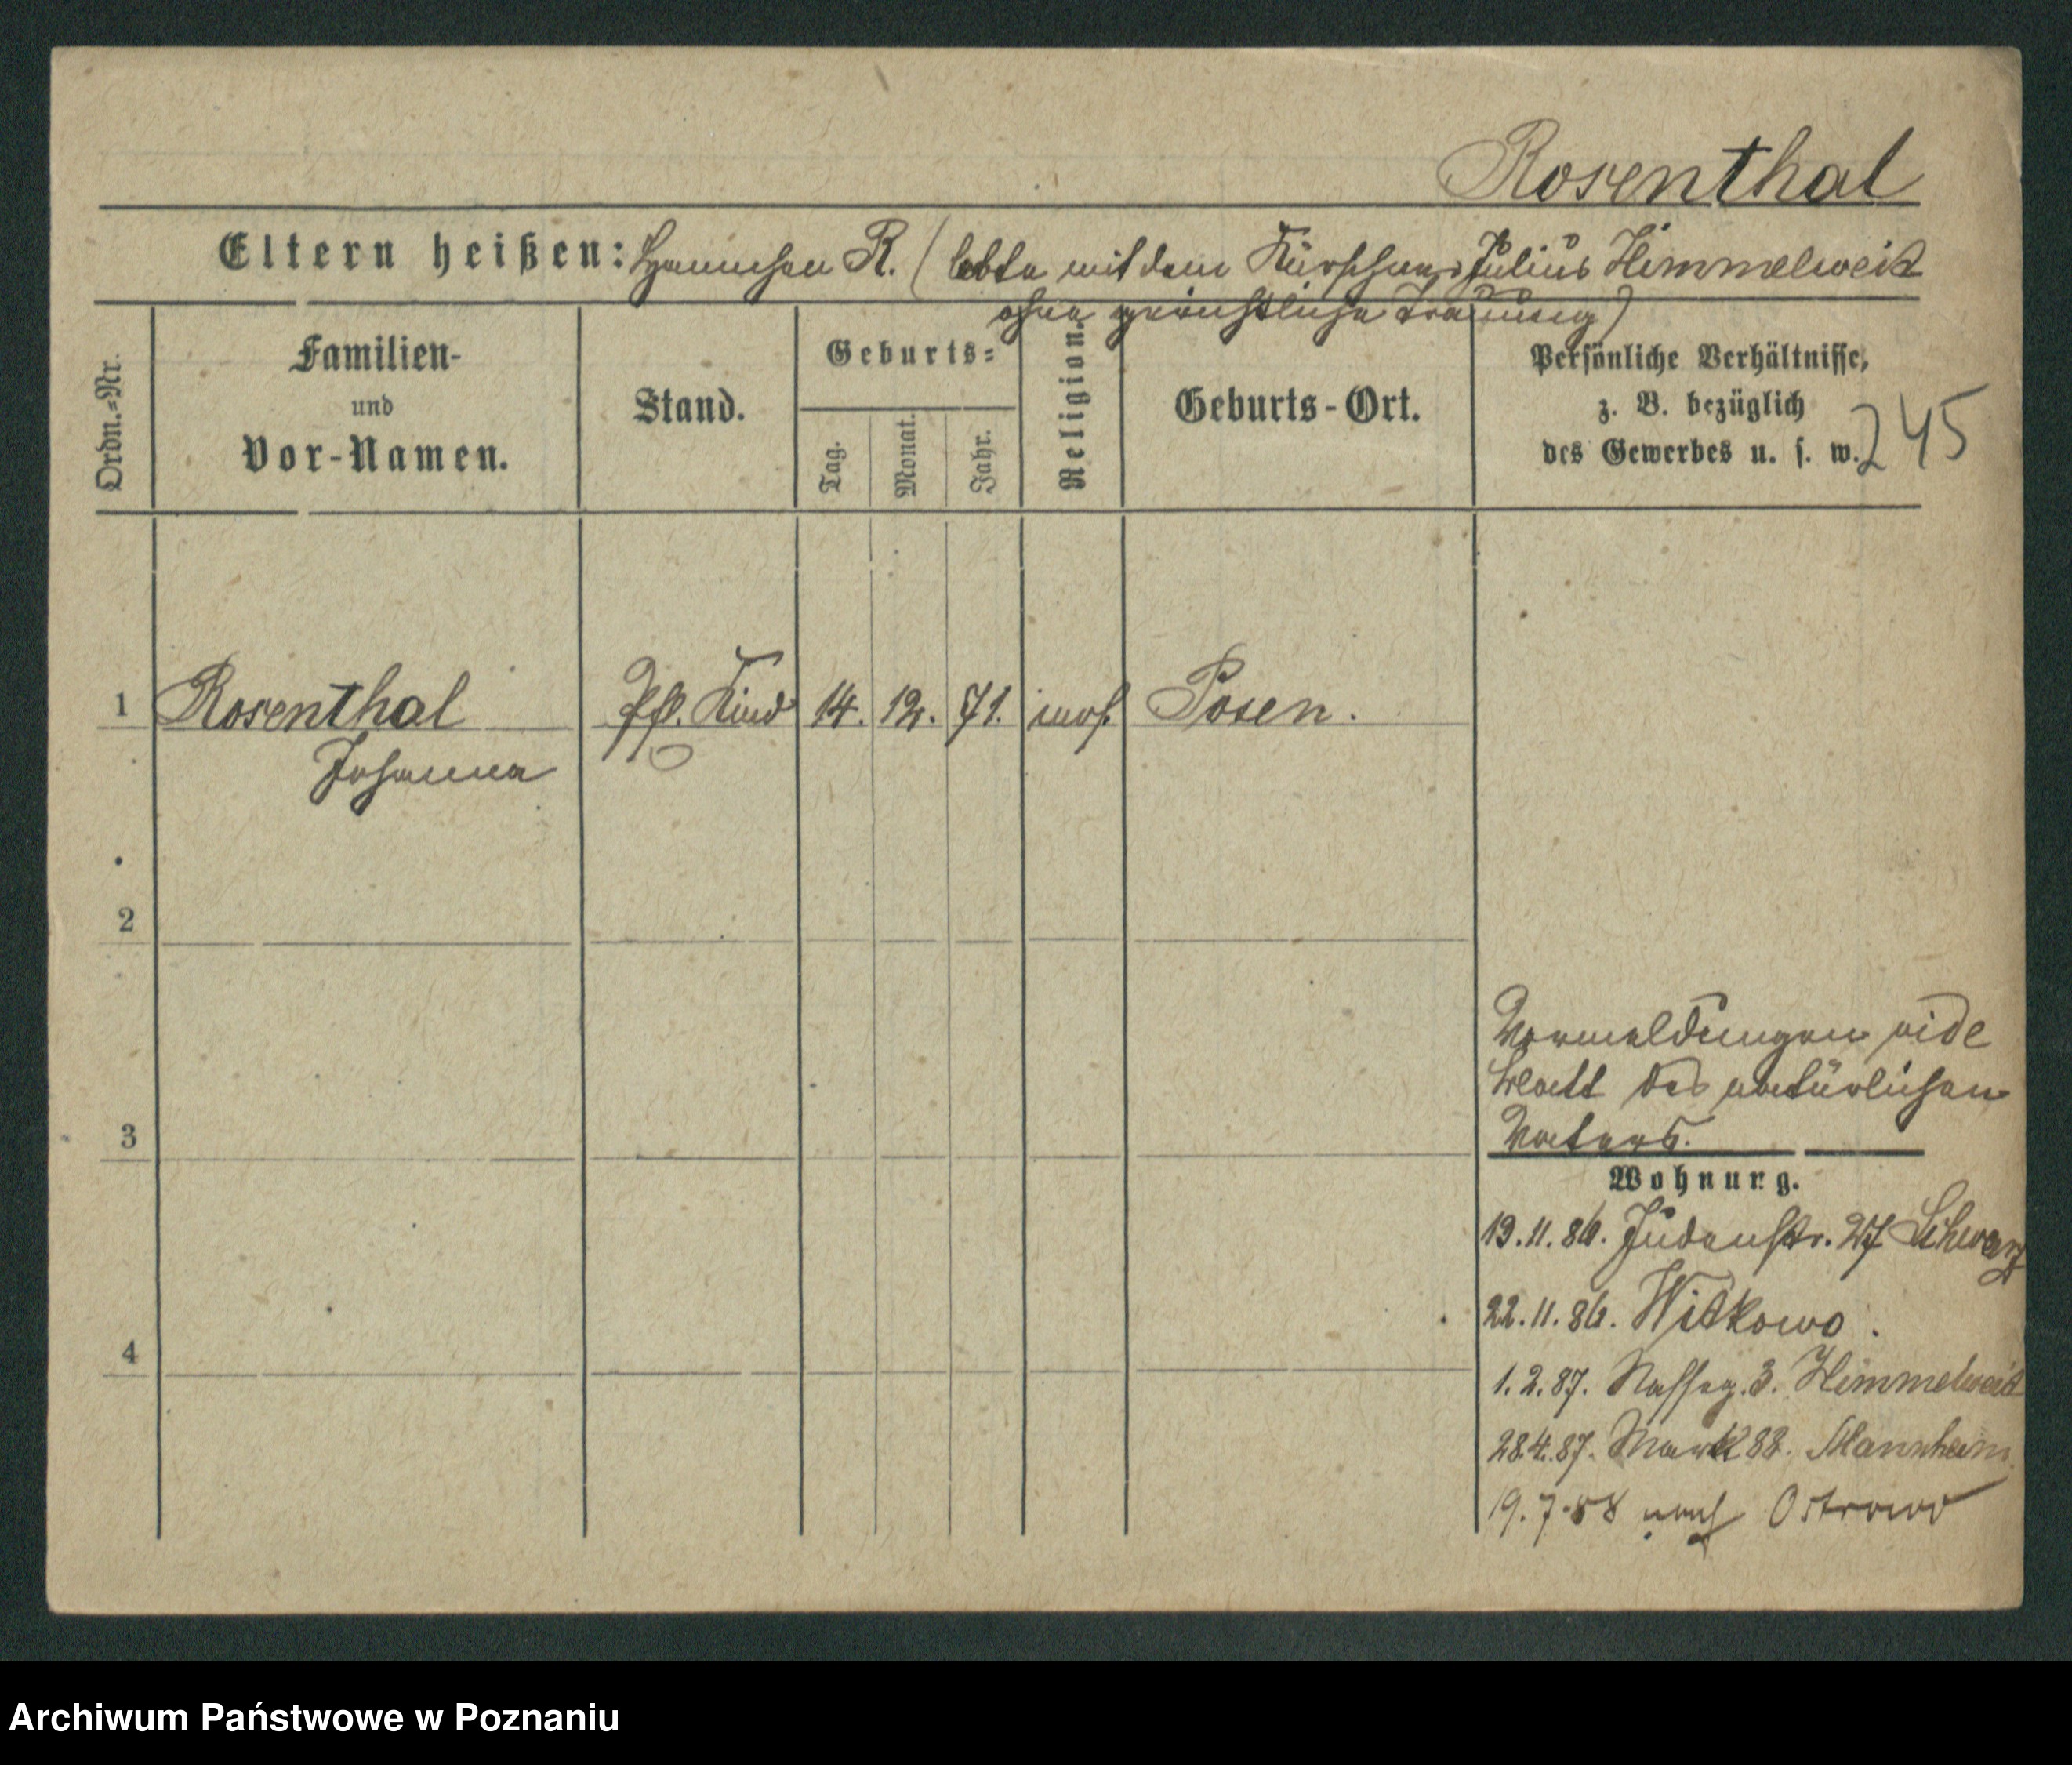 Rosenthal
Eltern heißen: Hannchen R. (lebte mit dem Kürschner Julius Himmelweit
ohne gerichtliche Trauung)
Ordn.=Nr.
Familien-
und
Vor-Namen.
Stand.
Geburts=
Tag.
Monat.
Jahr.
Religion.
Geburts-Ort.
Persönliche Verhältnisse,
z. B. bezüglich
des Gewerbes u. s. w.
245
1 Rosenthal Pfl. Kind 14. 12. 71. mos. Posen.
Johanna
2
3
4
Vormeldungen vide
Blatt des natürlichen
Vaters.
Wohnung.
19.11.86. Judenstr. 27 Schwarz
22.11.86. Witkowo.
1.2.87. Nasseg. 3. Himmelweit
28.4.87. Markt 88. Mannheim.
19.7.88 nach Ostrowo
Archiwum Państwowe w Poznaniu